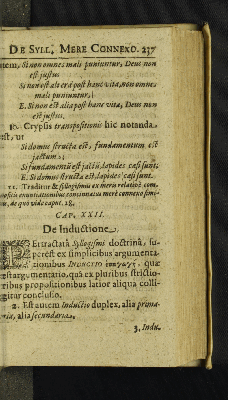 DE SYLL. MERE CONNEXO. 237
tem, Si non omnes mali puniuntur, Deus non
est justus
Si non est alia post hanc vita, non omnes
mali puniuntur;
E. Si non est alia post hanc vita, Deus non
est justus.
10. Crypsis transpositionis hic notanda
est, ut
Si domus structa est, fundamentum est
jactum;
Si fundamenti est jactu, lapides cæsi sunt;
E. Si domus structa est, lapides cæsi sunt.
11. Traditur & syllogismus ex meris relatis com-
positis enuntiationibus connexis
ut, de quo vide caput. 18.
CAP. XXII.
De Inductione.
Pertractatâ Syllogismi doctrinâ, su-
perest ex simplicibus argumenta-
tionibus INDUCTIO ἐπαγωγὴ, quæ
est argumentatio, quâ ex pluribus strictio-
ribus propositionibus latior aliqua colli-
gitur conclusio.
2. Est autem Inductio duplex, alia prima-
ria, alia secundaria.
3. Indu-